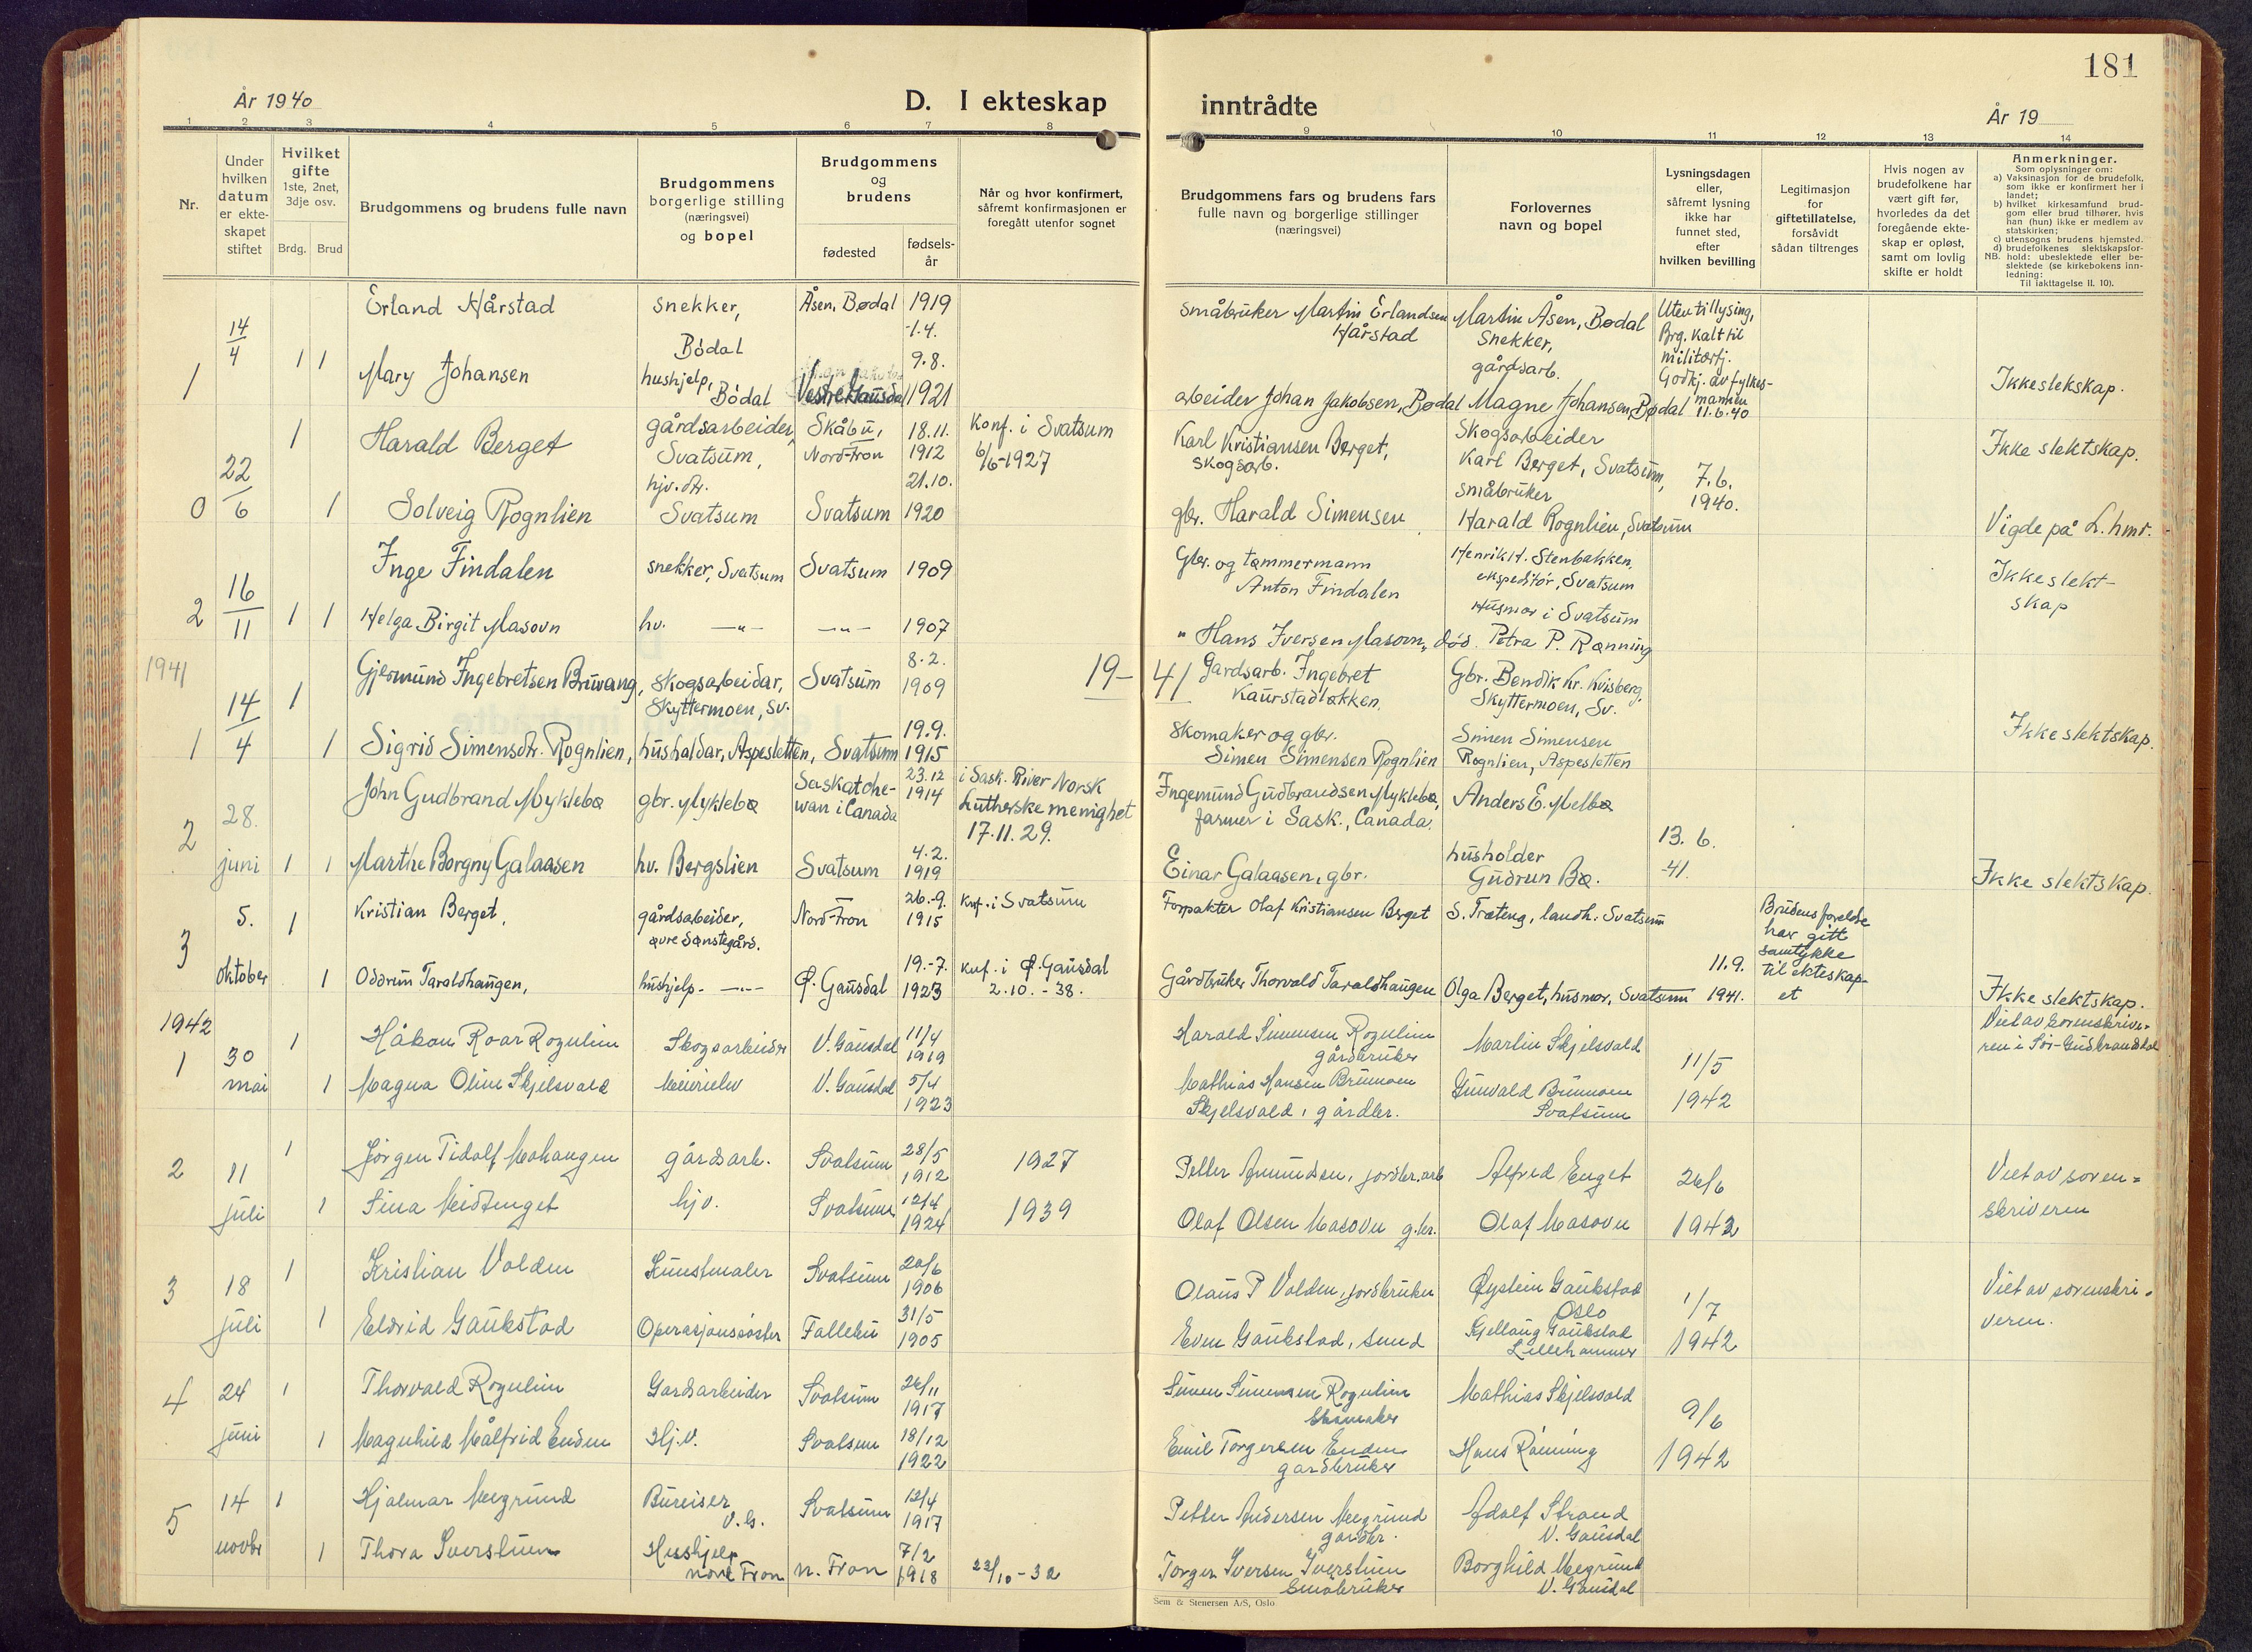 181
År 1940
D. I ekteskap
inntrådte
År 19
1 2 3 4 5 6 7 8 9 10 11 12 13 14
Nr.
Under hvilken datum er ekteskapet stiftet
Hvilket gifte 1ste, 2net, 3dje osv.
Brdg. Brud
Brudgommens og brudens fulle navn
Brudgommens borgerlige stilling (næringsvei) og bopel
Brudgommens og brudens
fødested
fødsels-år
Når og hvor konfirmert, såfremt konfirmasjonen er foregått utenfor sognet
Brudgommens fars og brudens fars fulle navn og borgerlige stillinger (næringsvei)
Forlovernes navn og bopel
Lysningsdagen eller, såfremt lysning ikke har funnet sted, efter hvilken bevilling
Legitimasjon for giftetillatelse, forsåvidt sådan tiltrenges
Hvis nogen av brudefolkene har vært gift før, hvorledes da det foregående ekteskap er opløst, samt om lovlig skifte er holdt
Anmerkninger.
Som oplysninger om:
a) Vaksinasjon for de brudefolk, som ikke er konfirmert her i landet;
b) hvilket kirkesamfund brudgom eller brud tilhører, hvis han (hun) ikke er medlem av statskirken;
c) utensogns brudens hjemsted.
d) brudefolkenes slektskapsforhold: ubeslektede eller beslektede (se kirkebokens innledning:
NB.
Til iakttagelse II. 10).
1 14/4 1 Erland Hårstad snekker, Bødal Åsen, Bødal 1919 1.4. småbruker Martin Erlandsen Hårstad Martin Åsen, Bødal snekker, Uten tillysing, Brg. kalt til militærtj. Godkj. av fylkesmannen 11.6.40
1 Mary Johansen hushjelp, Bödal Vestre Gausdal 9.8. 1921 arbeider Johan Jakobsen, Bødal gårdsarb. Magne Johansen, Bødal Ikke slekskap.
0 22/6 1 Harald Berget gårdsarbeider, Svatsum, Skåbu, Nord-Fron 18.11. 1912 Konf. i Svatsum 6/6-1927 Karl Kristiansen Berget, skogsarb. Skogsarbeider Karl Berget, Svatsum, 7.6. 1940. Ikke slektskap.
1 Solveig Rognlien hjv. dtr. Svatsum Svatsum 21.10. 1920 gbr. Harald Simensen småbruker Harald Rognlien, Svatsum Vigde på L.hmr.
2 16/11 1 Inge Findalen snekker, Svatsum Svatsum 1909 Gbr. og tømmermann Anton Findalen Henrik H. Stenbakken, ekspeditør, Svatsum Ikke slektskap
1 Helga Birgit Masovn hv. —"— —"— 1907 " Hans Iversen Masovn, død. Husmor i Svatsum Petra P. Rønning
1941
19-41
1 14/4 1 Gjermund Ingebretsen Bruvang, skogsarbeidar, Skyttermoen, Sv. Svatsum 8.2. 1909 gardsarb. Ingebret Kaurstadløkken Gbr. Bendik Kr. Kvisberg, Skyttermoen, Sv.
1 Sigrid Simensdtr. Rognlien, husholdar, Aspesletten, Svatsum 19.9. 1915 Skomaker og gbr. Simen Simensen Rognlien Simen Simensen Rognlien, Aspesletten Ikke slektskap.
2 28. juni 1 John Gudbrand Myklebø gbr. Myklebø Saskatchewan i Canada 23.12 1914 i Sask. River Norsk Lutherske menighet 17.11.29. Ingemund Gudbrandsen Myklebø, farmer i Sask., Canada. Anders E. Melbø 13.6. -41.
1 Marthe Borgny Galaasen hv. Bergslien Svatsum 4.2. 1919 Einar Galaasen, gbr. husholder Gudrun Bø. Ikke slektskap.
3 5. oktober 1 Kristian Berget, gårdsabeider, øvre Sønstegård. Nord-Fron 26.-9. 1915 knf. i Svatsum Forpakter Olaf Kristiansen Berget S. Træteng, landh. Svatsum 11.9. 1941. Brudens foreldre har gitt samtykke til ekteskapet
1 Oddrun Taraldhaugen, hushjelp. —"— Ø. Gausdal 19.-7. 1923 knf. i Ø. Gausdal 2.10.-38. Gårdbruker Thorvald Taraldhaugen Olga Berget, husmor, Svatsum Ikke slektskap.
1942
1 30 mai 1 Håkon Roar Rognlien Skogsarbeider V. Gausdal 11/4 1919 Harald Simensen Rognlien gårdbruker Martin Skjelsvold 11/5 1942 Viet av sorenskriveren i Sør-Gudbrandsdal
1 Magna Oline Skjelsvold Meierielev V. Gausdal 5/4 1923 Mathias Hansen Brunmoen Skjelsvold, gårdbr. Gunvald Brunmoen Svatsum
2 11 juli 1 Jørgen Tidolf Mohaugen gårdsarb. Svatsum 28/5 1912 1927 Petter Amundsen, jordbr.arb Alfred Enget 26/6 1942 Viet av sorenskriveren
1 Sina Meidtenget hjv. Svatsum 12/4 1924 1939 Olaf Olsen Masovn g.br. Olaf Masovn
3 18 juli 1 Kristian Volden Kunstmaler Svatsum 20/6 1906 Olaus P Volden, jordbruker Øystein Gaukstad Oslo 1/7 1942 Viet av sorenskriveren.
1 Eldrid Gaukstad Operasjonssøster Follebu 31/5 1905 Even Gaukstad, smed Kjellaug Gaukstad Lillehammer
4 24 juni 1 Thorvald Rognlien Gardsarbeider Svatsum 26/11 1917 Simen Simensen Rognlien Skomaker Mathias Skjelsvold 9/6 1942
1 Magnhild Målfrid Enden Hj.v. Svatsum 18/12 1922 Emil Torgersen Enden gardbruker Hans Rønning
5 14 novbr 1 Hjalmar Megrund Bureiser V.G. Svatsum 12/4 1917 Petter Andersen Megrund gardbr. Adolf Strand V. Gausdal
1 Thora Iverstuen Hushjelp Nord Fron N. Fron 7/2 1918 23/10-32 Torger Iversen Iverstuen Småbruker Borghild Megrund V. Gausdal
Sem & Stenersen A/S, Oslo